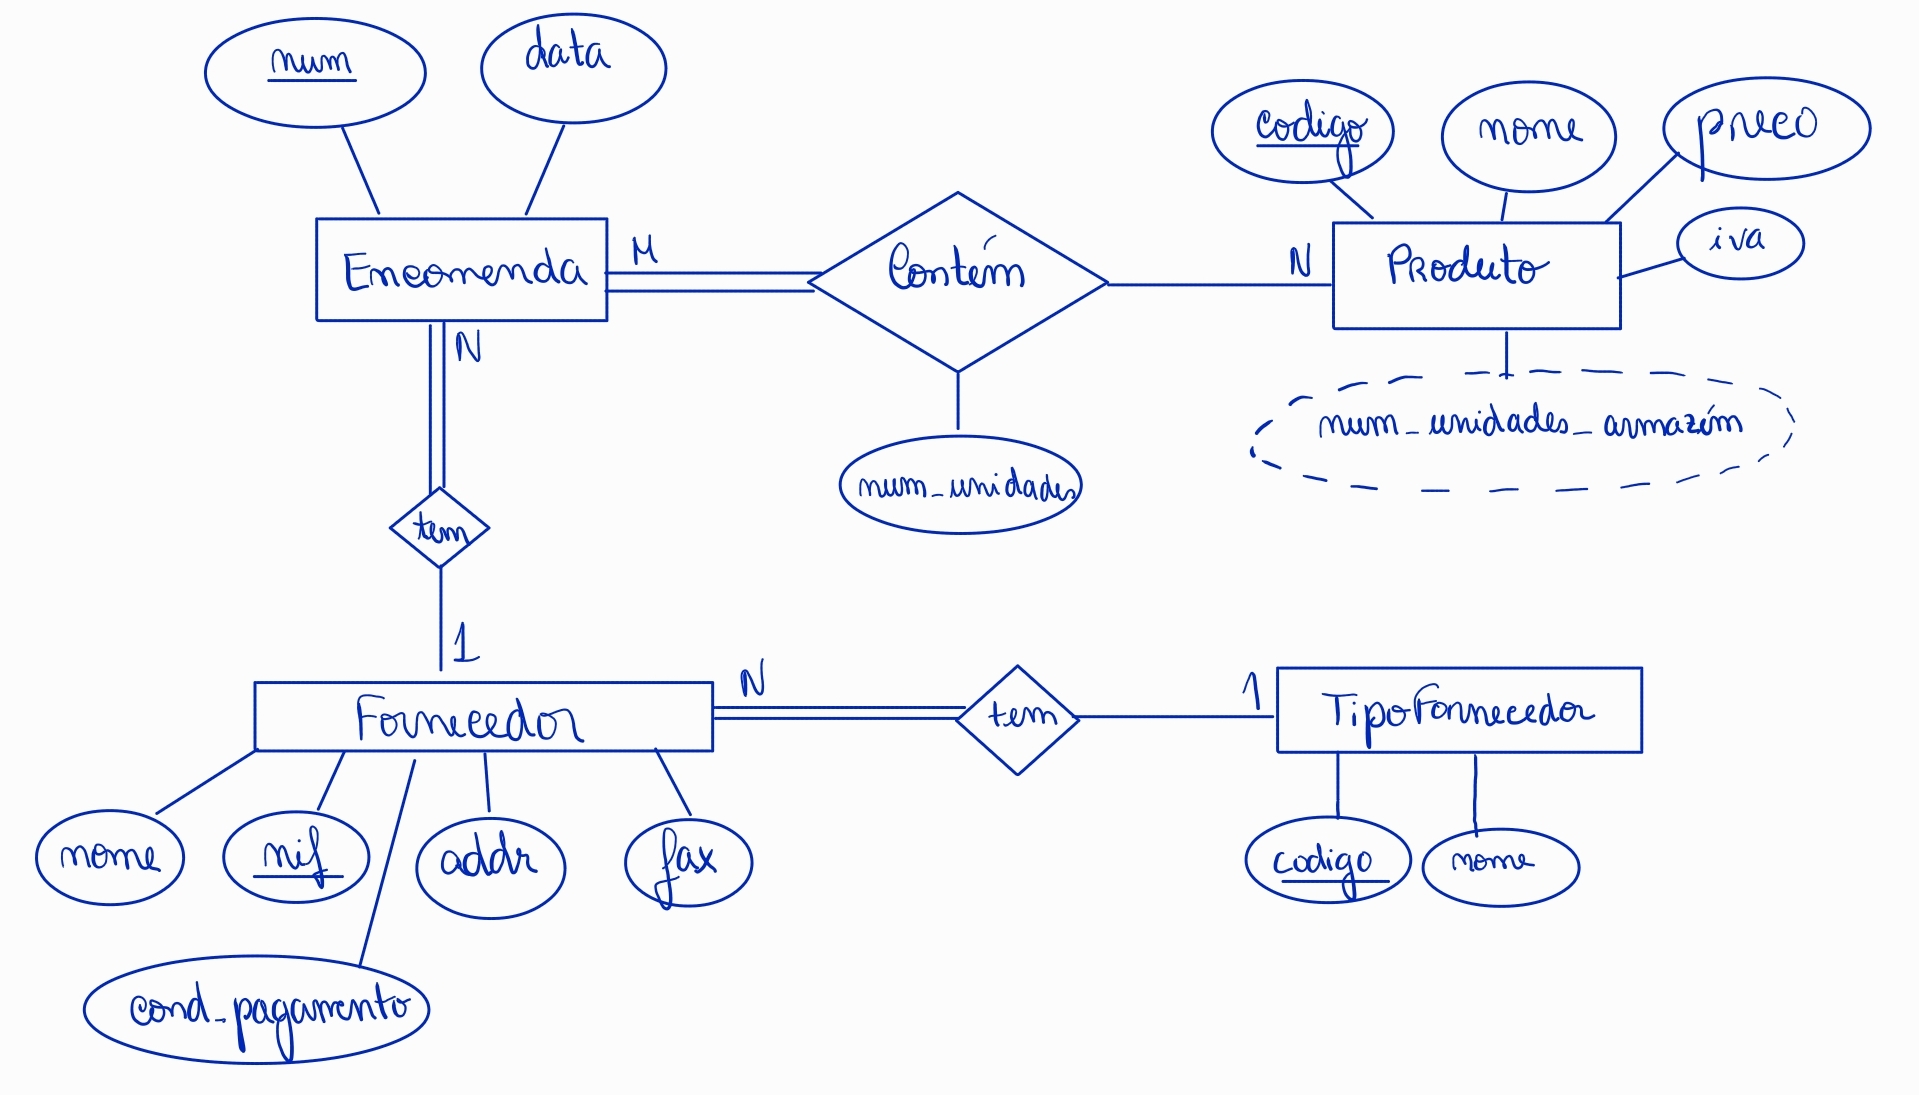 num
data
codigo
nome
preco
iva
Encomenda
M
Contém
N
Produto
N
num_unidades_armazém
num_unidades
tem
1
Fornecedor
N
tem
1
TipoFornecedor
nome
nif
addr
fax
codigo
nome
cond_pagamento